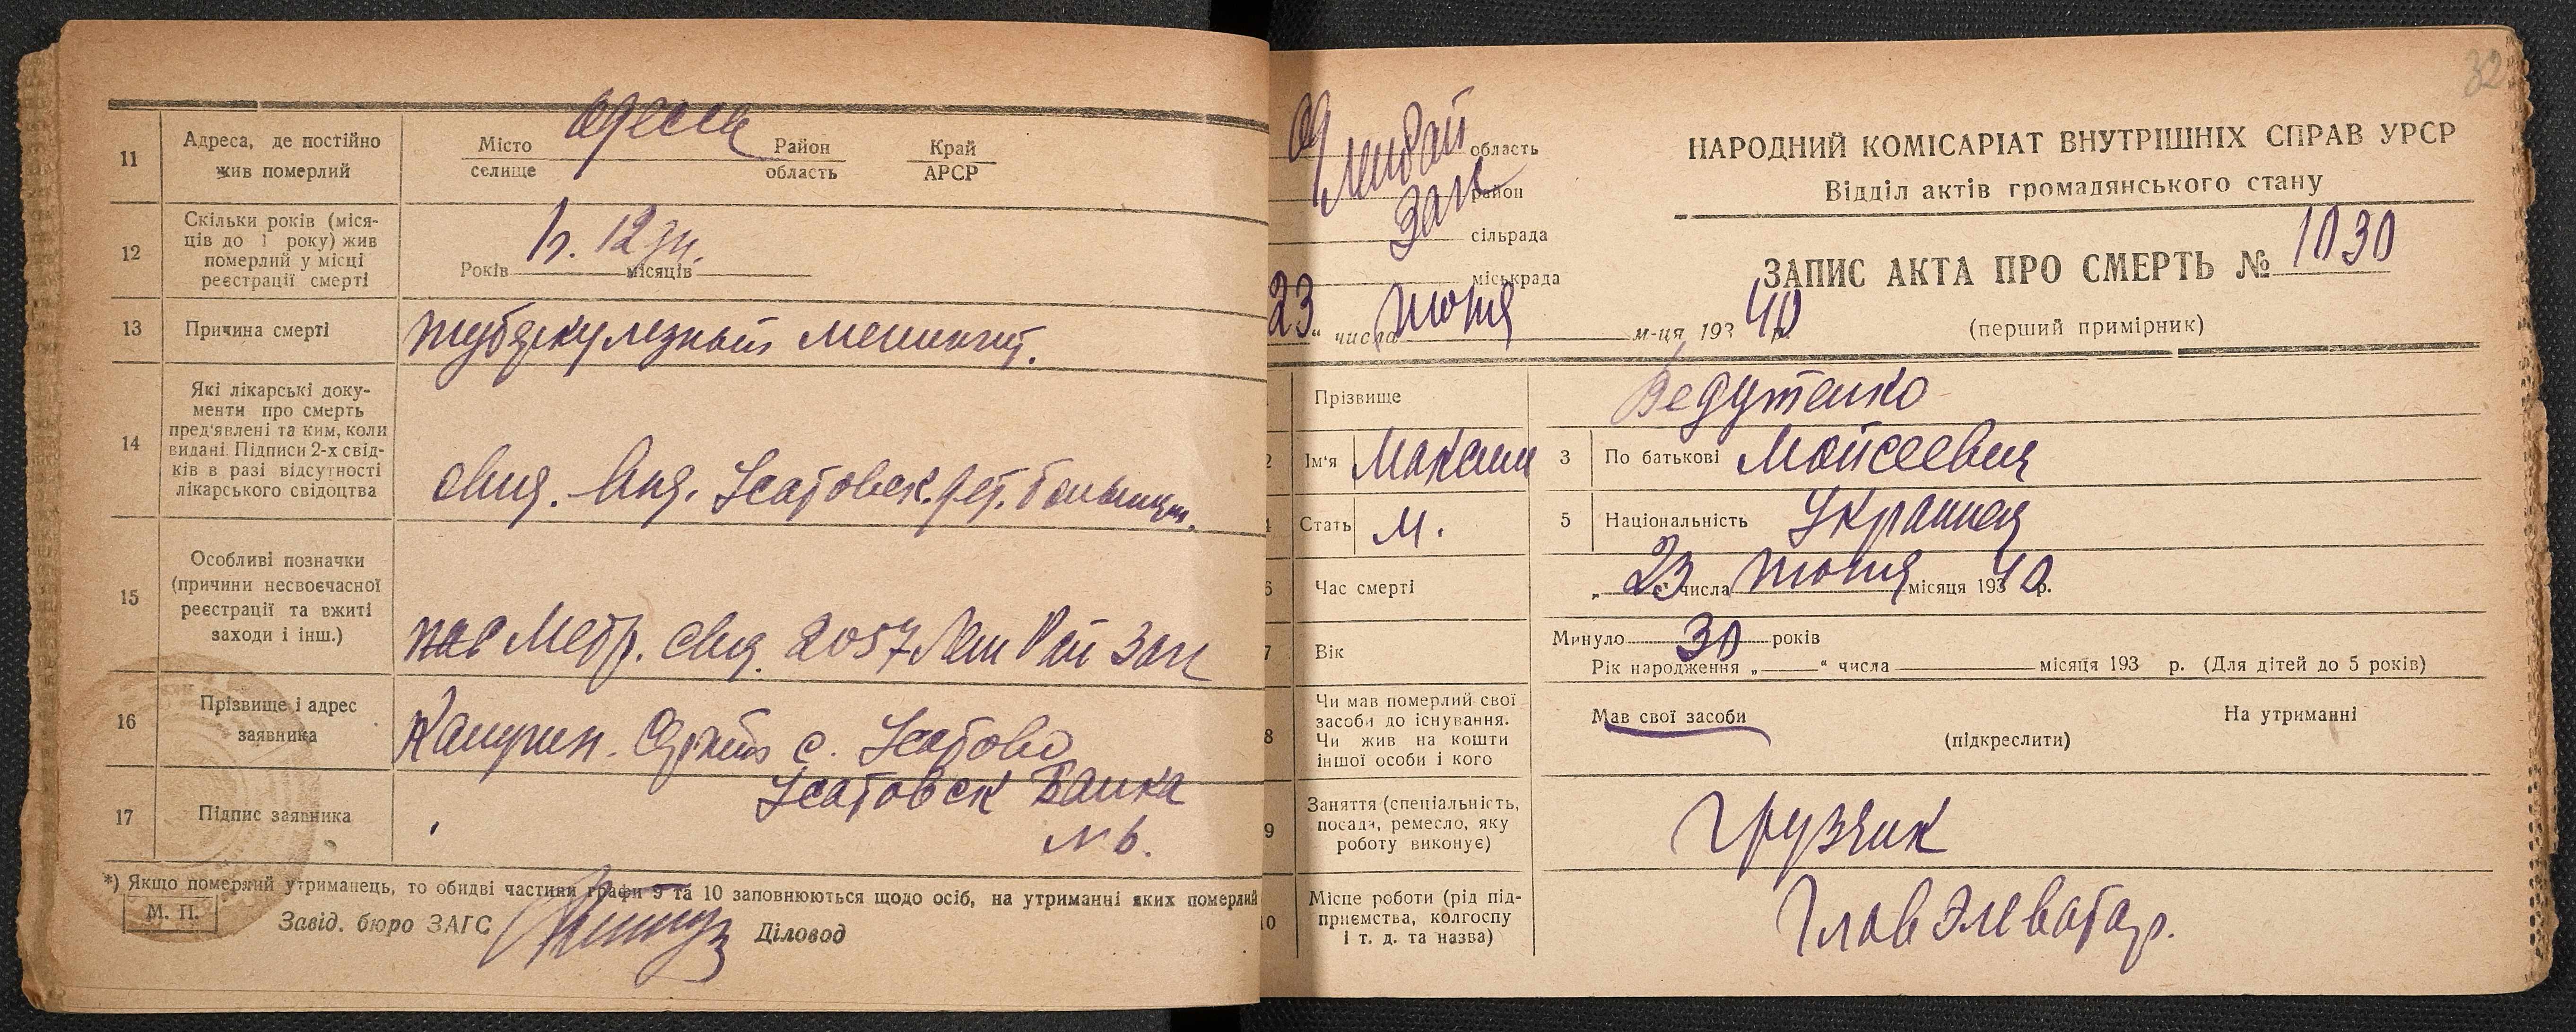 11
Адреса, де постійно
жив померлий
Місто
селище
Одесса
Район
область
Край
АРСР
12
Скільки років (міся-
ців до 1 року) жив
померлий у місці
реєстрації смерті
Років місяців
12 дн.
13
Причина смерті
туберкулезный менингит.
14
Які лікарські доку-
менти про смерть
пред'явлені та ким, коли
видані. Підписи 2-х свід-
ків в разі відсутності
лікарського свідоцтва
Усатовск. больниц.
15
Особливі позначки
(причини несвоєчасної
реєстрації та вжиті
заходи і інш.)
2057 Лен Рай Загс
16
Прізвище і адрес
заявника
с. Усатово
17
Підпис заявника
Усатовск Балка
№ 6.
*) Якщо померлий утриманець, то обидві частини графи 9 та 10 заповнюються щодо осіб, на утриманні яких померлий
М. П.
Завід. бюро ЗАГС
Діловод
32
Од
область
район
Загс
сільрада
міськрада
23 " числа июня м-ця 193 40 р.
НАРОДНИЙ КОМІСАРІАТ ВНУТРІШНІХ СПРАВ УРСР
Відділ актів громадянського стану
ЗАПИС АКТА ПРО СМЕРТЬ № 1030
(перший примірник)
Прізвище
Ведутенко
2
Ім'я
Максим
3
По батькові
Мойсеевич
Стать
М.
5
Національність
Украинец
6
Час смерті
„ 23 " числа июня місяця 193 40 р.
7
Вік
Минуло 30 років
Рік народження „ " числа місяця 193 р. (Для дітей до 5 років)
8
Чи мав померлий свої
засоби до існування.
Чи жив на кошти
іншої особи і кого
Мав свої засоби
На утриманні
(підкреслити)
9
Заняття (спеціальність,
посада, ремесло, яку
роботу виконує)
Грузчик
10
Місце роботи (рід під-
приємства, колгоспу
і т. д. та назва)
Глав Элеватор.